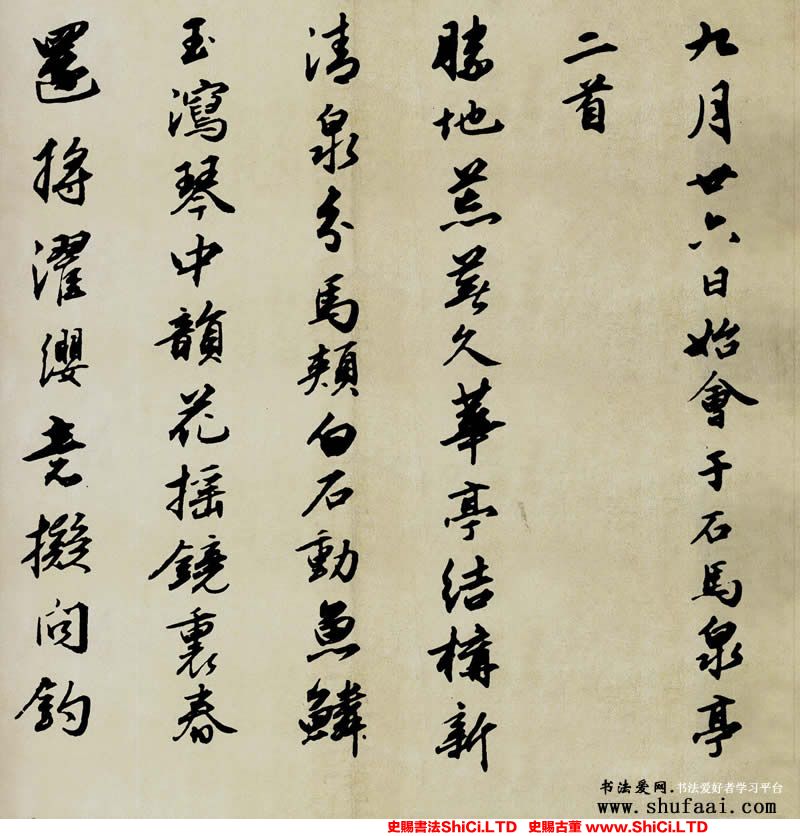 九月廿六日始會于石馬泉亭
二首
勝地荒蕪久華亭結構新
清泉分馬頰白石動魚鱗
玉瀉琴中韻花摇鏡裏春
還將濯纓意擬問釣
书法爱网.书法爱好者学习平台
www.shufaai.com
史賜書法ShiCi.LTD 史賜古董 www.ShiCi.LTD